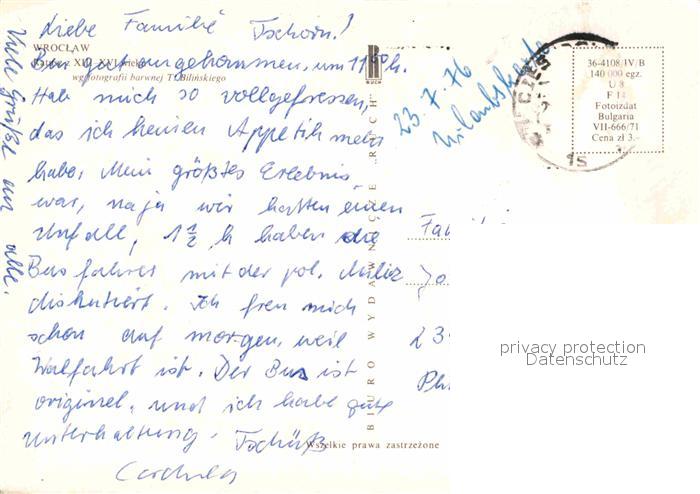 Liebe Familie Tschorn!
WROCŁAW
Ratusz z XIII-XVI wieku
wg fotografii barwnej T. Bilińskiego
Bin gut angekommen, um 11⁰⁰ h.
Hab mich so vollgefressen,
das ich keinen Appetih mehr
habe. Mein größtes Erlebnis
war, naja wir hatten einen
Unfall, 1½ h haben die
Busfahrer mit der pol. Miliz
diskutiert. Ich freu mich
schon auf morgen, weil
Walfahrt ist. Der Bus ist
originel, und ich habe gute
Unterhaltung. Tschüß
Cordula
Viele Grüße an alle.
RUCH
BIURO WYDAWNICZE „RUCH”
Wszelkie prawa zastrzeżone
23.7.76
Urlaubskarte
36-4108/IV/B
140 000 egz.
U 8
F 14
Fotoizdat
Bulgaria
VII-666/71
Cena zł 3.-
15
Fa
Jo
23
privacy protection
Datenschutz